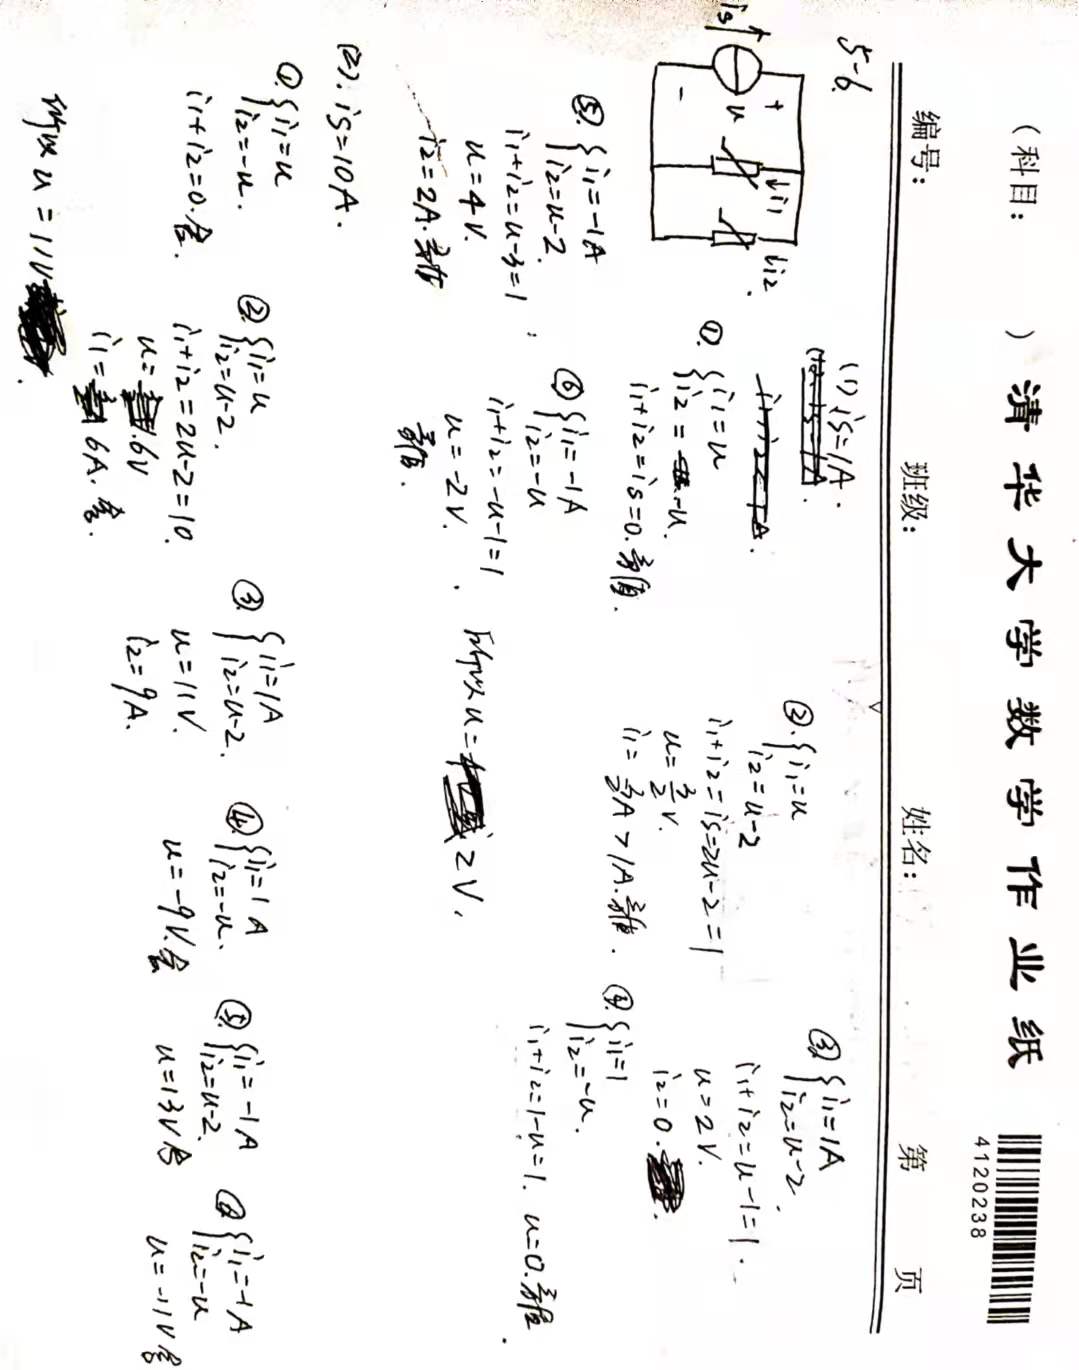 (科目: ) 清华大学数学作业纸
4120238
编号: 班级: 姓名: 第 页
5-6.
is
+
u
-
i1
i2
(1) is=1A.
①. { i1=u
i2=-u.
i1+i2=is=0. 舍.
②. { i1=u
i2=u-2
i1+i2=is=2u-2=1
u=3/2 V.
i1=3/2A>1A.
③ { i1=1A
i2=u-2.
i1+i2=u-1=1.
u=2V.
i2=0.
④. { i1=1
i2=-u.
i1+i2=1-u=1. u=0.
⑤. { i1=-1A
i2=u-2.
i1+i2=u-3=1
u=4V.
i2=2A.
⑥ { i1=-1A
i2=-u
i1+i2=-u-1=1
u=-2V.
所以u=2V.
(2). is=10A.
① { i1=u
i2=-u.
i1+i2=0. 舍.
② { i1=u
i2=u-2.
i1+i2=2u-2=10.
u=6V
i1=6A. 舍.
③. { i1=1A
i2=u-2.
u=11V.
i2=9A.
④ { i1=1A
i2=-u.
u=-9V. 舍
⑤. { i1=-1A
i2=u-2.
u=13V 舍
⑥ { i1=-1A
i2=-u
u=-11V 舍
所以u=11V.